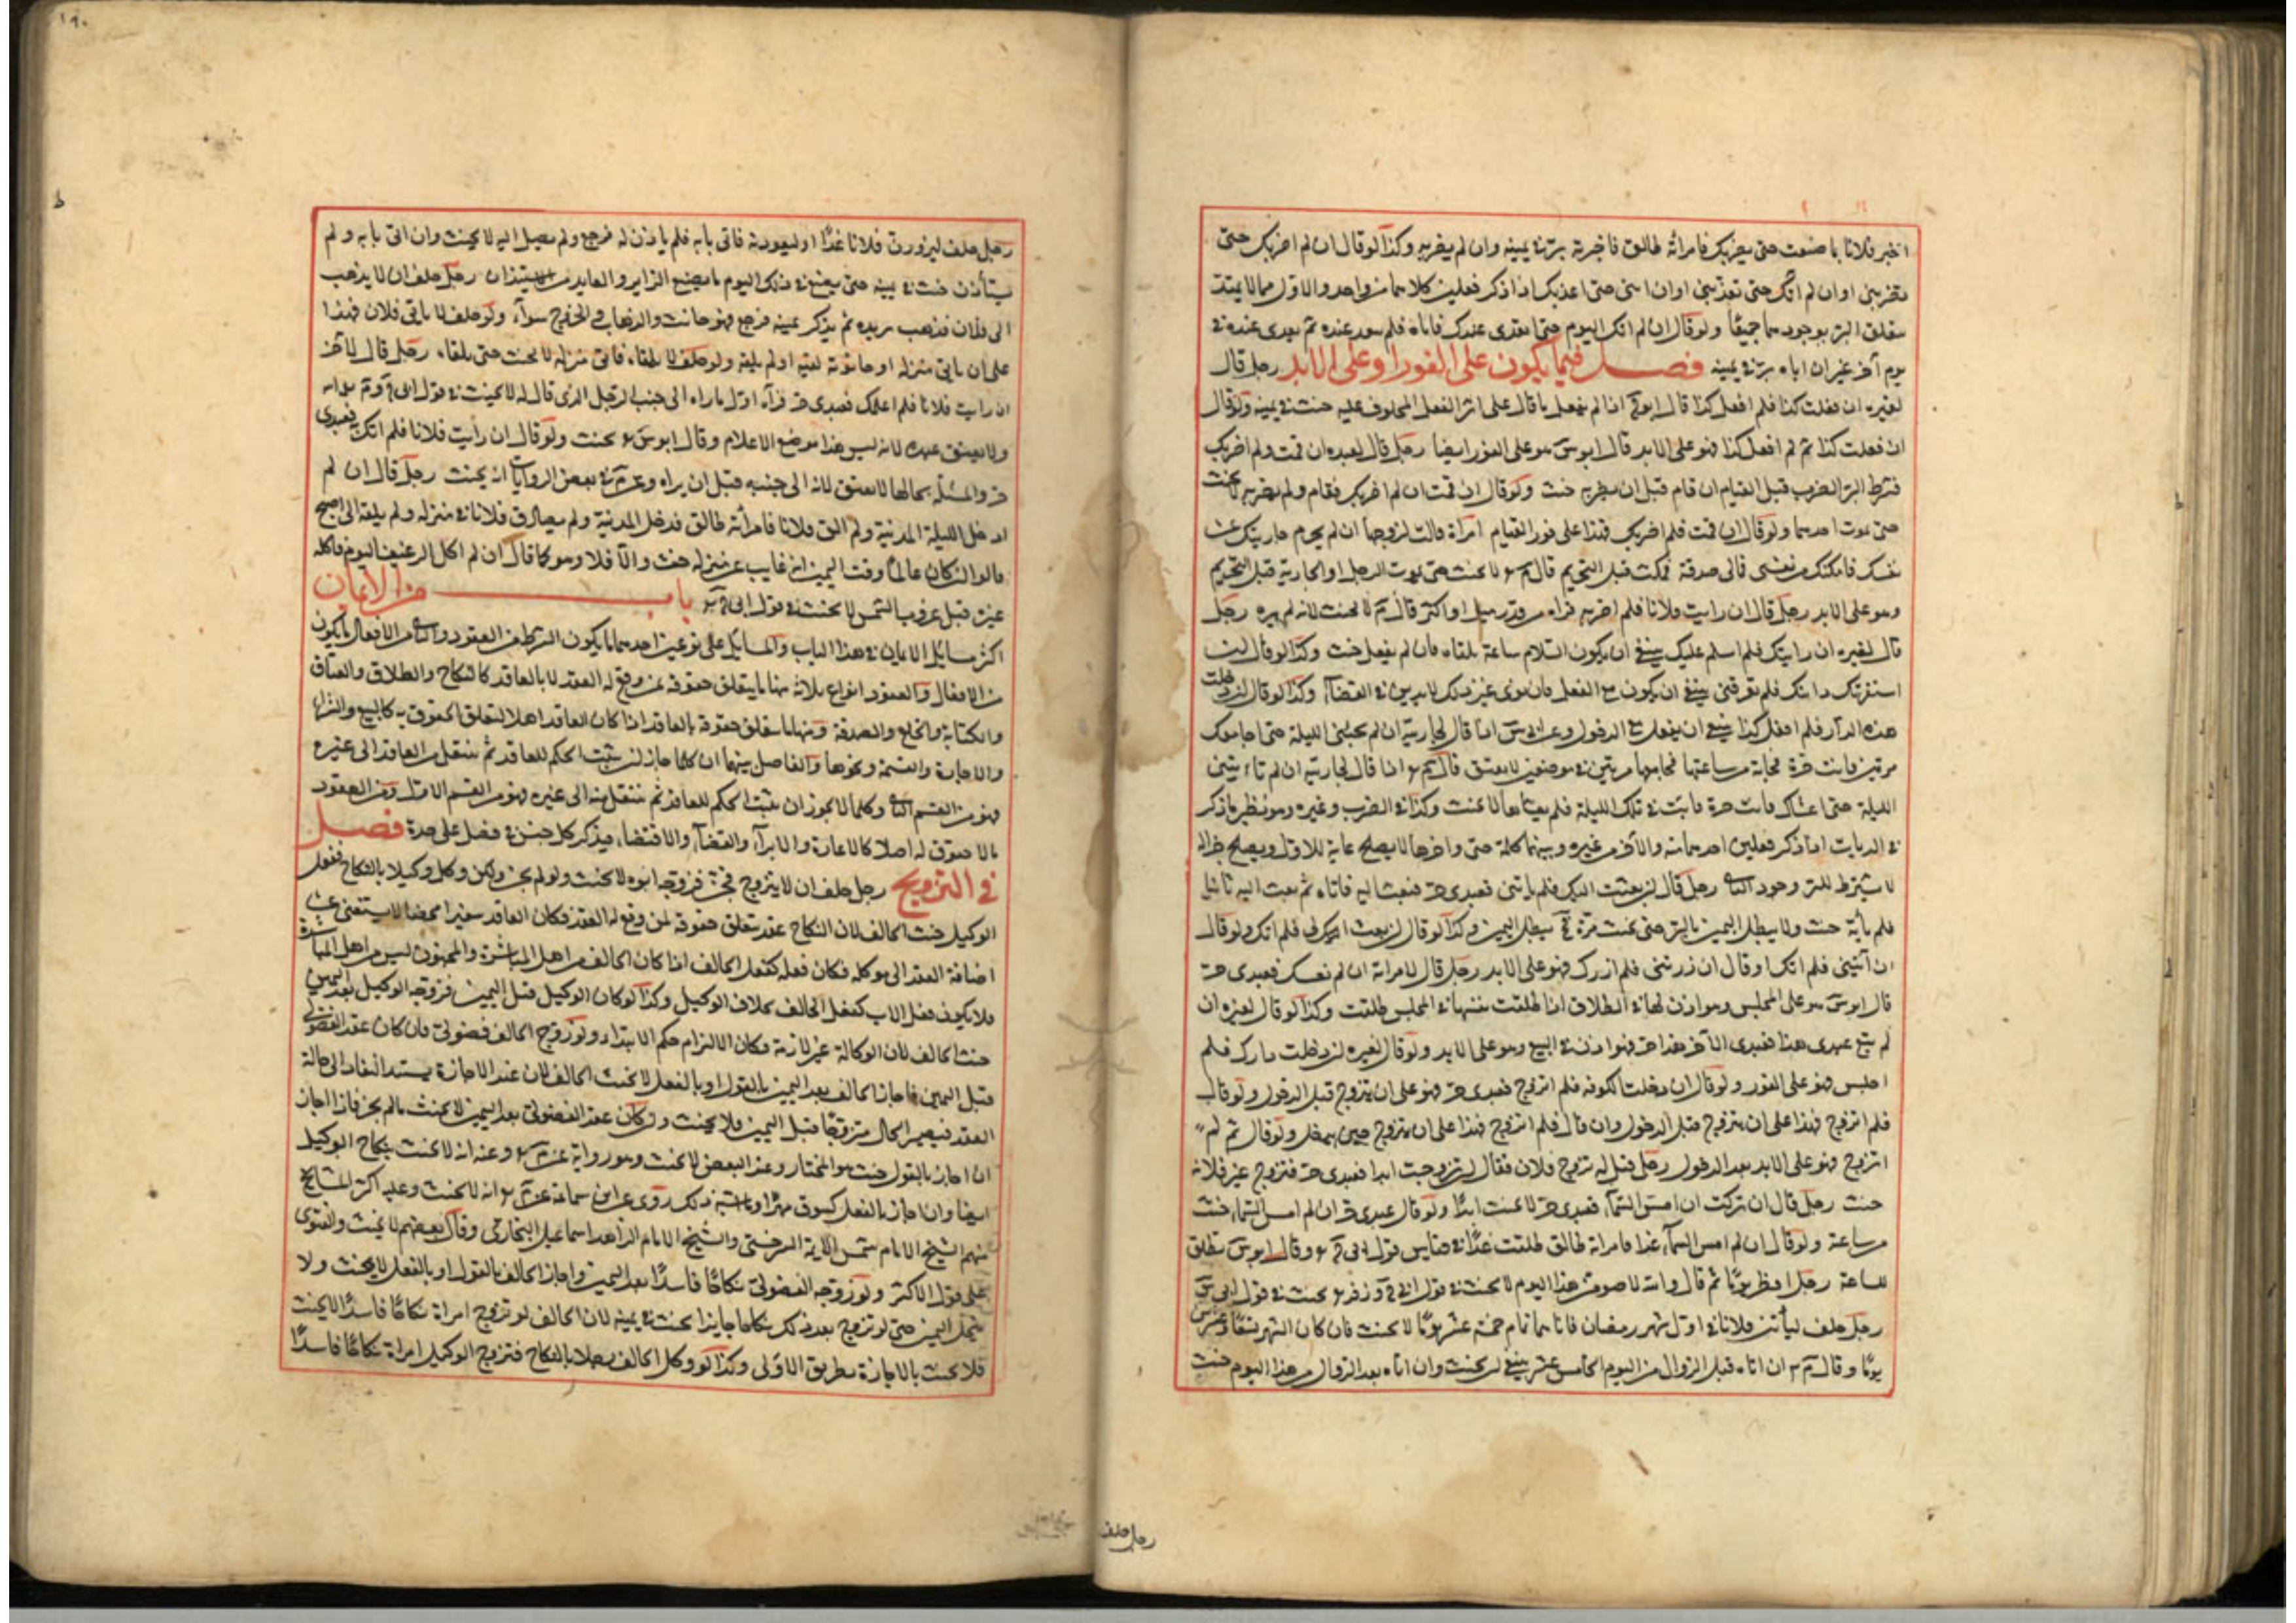 اخبر فلانا بما صنعت حتى يضربك فامرأته طالق فاخبره برّ في يمينه وان لم يضربه وكذا لو قال ان لم اضربك حتى
تضربني او ان لم اتك حتى تغديني او ان اتني حتى اغديك اذا ذكر فعلين كلاهما من واحد والاول مما لا يمتد
يتعلق البر بوجودهما جميعا ولو قال ان لم اتك اليوم حتى اتغدى عندك فاتاه فلم يتغد عنده ثم تغدى عنده في
يوم آخر غير ان اتاه برّ في يمينه فصل فيما يكون على الفور او على الابد رجل قال
لغيره ان فعلت كذا فلم افعل كذا قال اذا لم يفعل ما قال على اثر الفعل المحلوف عليه حنث في يمينه ولو قال
ان فعلت كذا ثم لم افعل كذا فهو على الابد قال ابو س هو على الفور ايضا رجل قال لعبده ان قمت ولم اضربك
فشرط البر الضرب قبل القيام ان قام قبل ان يضربه حنث ولو قال ان قمت ان لم اضربك فقام ولم يضربه لا يحنث
حتى يموت احدهما ولو قال ان قمت فلم اضربك فهذا على فور القيام امرأة قالت لزوجها ان لم يحرم جاريتك على
نفسك فامكنتك من نفسي فمالي صدقة فمكث قبل التحريم قال لا يحنث حتى يموت الرجل او الجارية قبل التحريم
وهو على الابد رجل قال ان رايت فلانا فلم اضربه فراه من قدر ميل او اكثر قال م لا يحنث لانه لم يره رجل
قال لغيره ان رايتك فلم اسلم عليك ينبغي ان يكون السلام ساعة يلقاه فان لم يفعل حنث وكذا لو قال ان
استعرتك دابتك فلم تعرني ينبغي ان يكون مع الفعل فان نوى غير ذلك لا يدين في القضاء وكذا لو قال ان دخلت
هذه الدار فلم افعل كذا ينبغي ان يفعل مع الدخول وعن س اذا قال لجاريته ان لم تجيئني الليلة حتى اجامعك
مرتين فانت حرة فجاءته من ساعتها فجامعها مرتين في موضعين لا يعتق قال م اذا قال لجاريته ان لم تأتيني
الليلة حتى اغشاك فانت حرة فاتت في تلك الليلة فلم يغشاها لا يحنث وكذا في الضرب وغيره وهو نظير ما ذكر
في الزيادات اذا ذكر فعلين احدهما منه والآخر من غيره وبينهما كلمة حتى واخرها لا يصلح غاية للاول ويصلح جزاء
لا يشترط للبر وجود الثاني رجل قال ان بعثت اليك فلم تأتني فعبدي حر فبعث اليه فاتاه ثم بعث اليه ثانيا
فلم يأته حنث ولا يبطل اليمين بالبر حتى يحنث مرة ثم يبطل اليمين وكذا لو قال ان بعثت الي فلم اتك ولو قال
ان اتيتني فلم اتك او قال ان زرتني فلم ازرك فهو على الابد رجل قال لامرأته ان لم تطلقي نفسك فعبدي حر
قال ابو س هو على المجلس وهو اذن لها في الطلاق اذا طلقت نفسها في المجلس طلقت وكذا لو قال لغيره ان
لم تبع عبدي هذا فعبدي الآخر هذا حر فهو اذن في البيع وهو على الابد ولو قال لغيره ان دخلت دارك فلم
اجلس فهو على الفور ولو قال ان دخلت الكوفة فلم اتزوج فعبدي حر فهو على ان يتزوج قبل الدخول ولو قال
فلم اتزوج فهذا على ان يتزوج قبل الدخول وان قال فلم اتزوج فهذا على ان يتزوج حين يدخل ولو قال ثم لم
اتزوج فهو على الابد بعد الدخول رجل قيل له تزوج فلان فقال ان تزوجت ابدا فعبدي حر فتزوج غير فلانة
حنث رجل قال ان تركت ان امس السماء فعبدي حر لا يحنث ابدا ولو قال عبدي حر ان لم امس السماء حنث
من ساعته ولو قال ان لم امس السماء غدا فامرأته طالق طلقت غدا في قياس قول ابي ح وقال ابو س تطلق
للساعة رجل افطر يوما ثم قال والله لاصومن هذا اليوم لا يحنث في قول ابي ح وزفر يحنث في قول ابي س
رجل حلف ليأتين فلانا في اول شهر رمضان فاتاه لتمام خمسة عشر يوما لا يحنث فان كان الشهر تسعا وعشرين
يوما وقال م ان اتاه قبل الزوال من اليوم الخامس عشر ينبغي ان لا يحنث وان اتاه بعد الزوال من هذا اليوم حنث
رجل حلف
١٩٠
رجل حلف ليزورن فلانا غدا او ليعودنه فاتى بابه فلم يأذن له فرجع ولم يصل اليه لا يحنث وان اتى بابه ولم
يستأذن حنث في يمينه حتى يصنع في ذلك اليوم ما يصنع الزاير والعايد من الاستئذان رجل حلف ان لا يذهب
الى فلان فذهب يريده ثم يذكر يمينه فرجع فهو حانث والذهاب والخروج سواء ولو حلف لا يأتي فلان فهذا
على ان يأتي منزله او حانوته لقيه او لم يلقه ولو حلف لا يلقاه فاتى منزله لا يحنث حتى يلقاه رجل قال لآخر
ان رايت فلانا فلم اعلمك فعبدي حر فرآه اول ما راه الى جنب الرجل الذي قال له لا يحنث في قول ابي ح وم
ولا يعتق عبده لانه ليس هذا موضع الاعلام وقال ابو س يحنث ولو قال ان رأيت فلانا فلم اتك به فعبدي
حر والمسئلة بحالها لا يعتق لانه الى جنبه قبل ان يراه وعن م في بعض الروايات انه يحنث رجل قال ان لم
ادخل الليلة المدينة ولم الق فلانا فامرأته طالق فدخل المدينة ولم يصادف فلانا في منزله ولم يلقه الى الصبح
قالوا ان كان عالما وقت اليمين انه غايب عن منزله حنث والا فلا وهو كما قال ان لم اكل الرغيف اليوم فاكله
غيره قبل غروب الشمس لا يحنث في قول ابي ح م باب من الايمان
اكثر مسايل الايمان في هذا الباب والمسايل على نوعين احدهما ما يكون الشرط من العقود والثاني من الافعال ما يكون
من الافعال والعقود انواع ثلاثة منها ما يتعلق حقوقه بمن وقع له العقد لا بالعاقد كالنكاح والطلاق والعتاق
والكتابة والخلع والصدقة ومنها ما يتعلق حقوقه بالعاقد اذا كان العاقد اهلا لتعلق الحقوق به كالبيع والشراء
والاجارة والقسمة ونحوها والفاصل بينهما ان كلما جاز ان يثبت الحكم للعاقد ثم ينتقل من العاقد الى غيره
فهو من القسم الثاني وكلما لا يجوز ان يثبت الحكم للعاقد ثم ينتقل منه الى غيره فهو من القسم الاول ومن العقود
ما لا حقوق له اصلا كالاعارة والابراء والقضاء والاقتضاء فيذكر كل جنس في فصل على حدة فصل
في التزويج رجل حلف ان لا يتزوج فجن فزوجه ابوه لا يحنث ولو لم يجن ولكن وكل وكيلا بالنكاح ففعل
الوكيل حنث الحالف لان النكاح عقد يتعلق حقوقه لمن وقع له العقد فكان العاقد سفيرا محضا لا يستغني عن
اضافة العقد الى موكله فكان فعله كفعل الحالف اذا كان الحالف من اهل المباشرة والمجنون ليس من اهل المباشرة
فلا يكون فعل الاب كفعل الحالف بخلاف الوكيل وكذا لو كان الوكيل قبل اليمين فزوجه الوكيل بعد اليمين
حنث الحالف لان الوكالة غير لازمة فكان الالتزام حكم الابتداء ولو زوج الحالف فضولي فان كان عقد الفضولي
قبل اليمين فاجاز الحالف بعد اليمين بالقول او بالفعل لا يحنث الحالف لان عند الاجازة يستند النفاذ الى حالة
العقد فيصير الحال متزوجا قبل اليمين فلا يحنث ولو كان عقد الفضولي بعد اليمين لا يحنث ما لم يجز فاذا اجاز
ان اجاز بالقول حنث هو المختار وعند البعض لا يحنث وهو رواية عن م وعنه انه لا يحنث بنكاح الوكيل
ايضا وان اجاز بالفعل كسوق مهر او ما اشبه ذلك روى عن ابن سماعة عن م انه لا يحنث وعليه اكثر المشايخ
منهم الشيخ الامام شمس الايمة السرخسي والشيخ الامام الزاهد اسماعيل البخاري وقال بعضهم لا يحنث والفتوى
على قول الاكثر ولو زوجه الفضولي نكاحا فاسدا بعد اليمين واجاز الحالف بالقول او بالفعل لا يحنث ولا
ينحل اليمين حتى لو تزوج بعد ذلك نكاحا جايزا يحنث في يمينه لان الحالف لو تزوج امرأة نكاحا فاسدا لا يحنث
فلا يحنث بالاجازة بطريق الاولى وكذا لو وكل الحالف رجلا بالنكاح فتزوج الوكيل امرأة نكاحا فاسدا